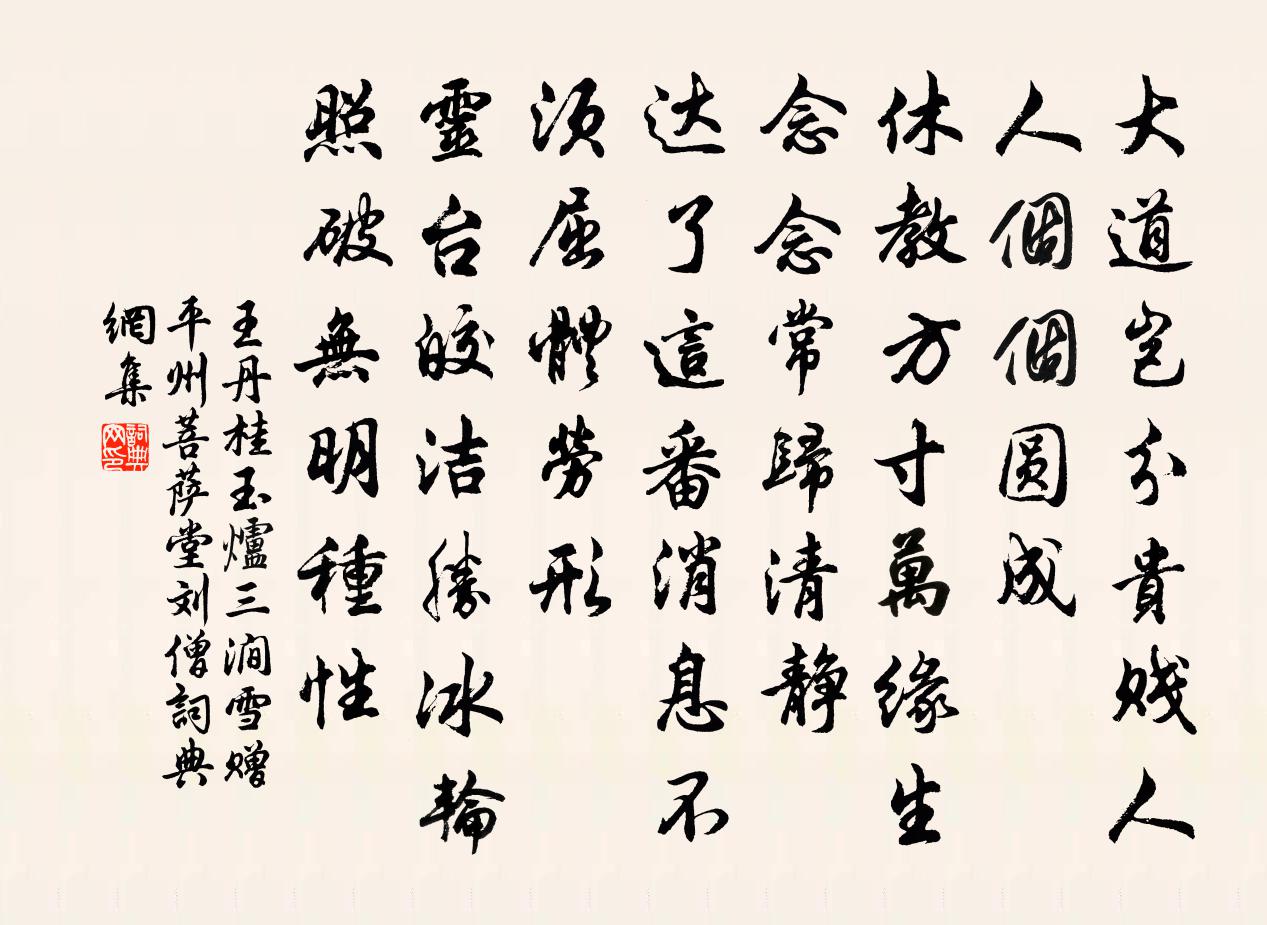 大道岂分貴賎人
人個個圆成
休教方寸萬緣生
念念常歸清静
达了這番消息不
须屈體勞形
靈台皎洁勝冰輪
照破無明種性
王丹桂玉爐三澗雪赠
平州菩萨堂刘僧詞典
網集
詞典网印